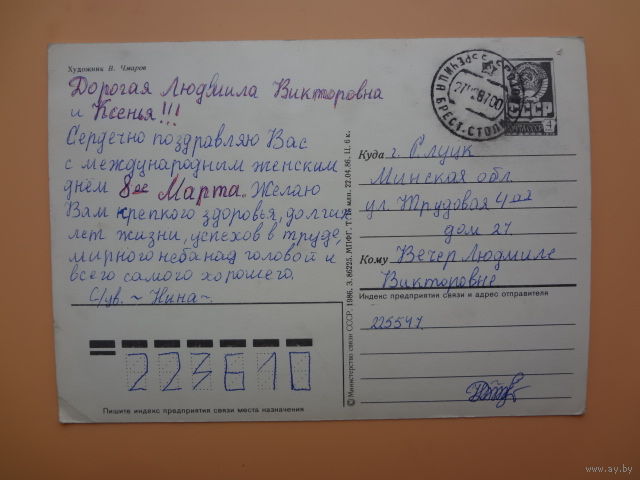 Художник В. Чмаров
Дорогая Людмила Викторовна
и Ксенья!!!
Сердечно поздравляю Вас
с международным женским
днём 8ое Марта. Желаю
Вам крепкого здоровья, долгих
лет жизни, успехов в труде,
мирного неба над головой и
всего самого хорошего.
С/ув. ~ Нина ~
223610
Пишите индекс предприятия связи места назначения
© Министерство связи СССР, 1986. З. 86225. МПФГ. 22.04.86. Ц. 6 к.
БРЕСТ. СТОЛ
СССР
4
Куда г. Слуцк
Минская обл
ул Трудовая 4ая
дом 27
Кому Вечер Людмиле
Викторовне
Индекс предприятия связи и адрес отправителя
225547.
www.ay.by